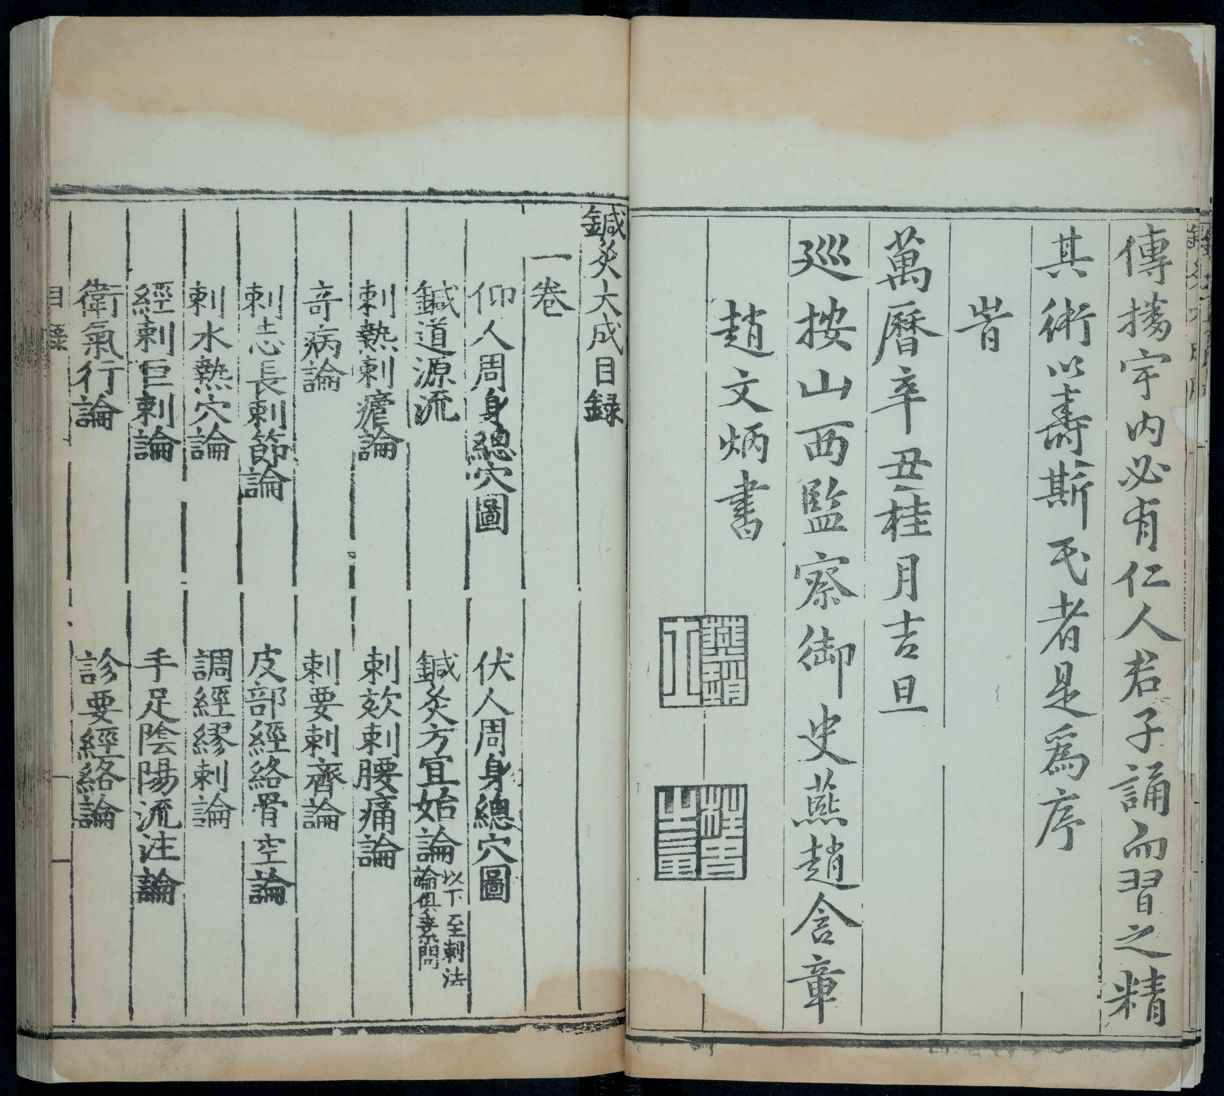 傳播宇內必有仁人君子誦而習之精
其術以壽斯民者是爲序
旹
萬曆辛丑桂月吉旦
巡按山西監察御史燕趙含章
趙文炳書
鍼灸大成目録
一卷
仰人周身總穴圖
伏人周身總穴圖
鍼道源流
鍼灸方宜始論以下至刺法論俱素問
刺熱刺瘧論
刺欬刺腰痛論
奇病論
刺要刺齊論
刺志長刺節論
皮部經絡骨空論
刺水熱穴論
調經繆刺論
經刺巨刺論
手足陰陽流注論
衛氣行論
診要經絡論
目録